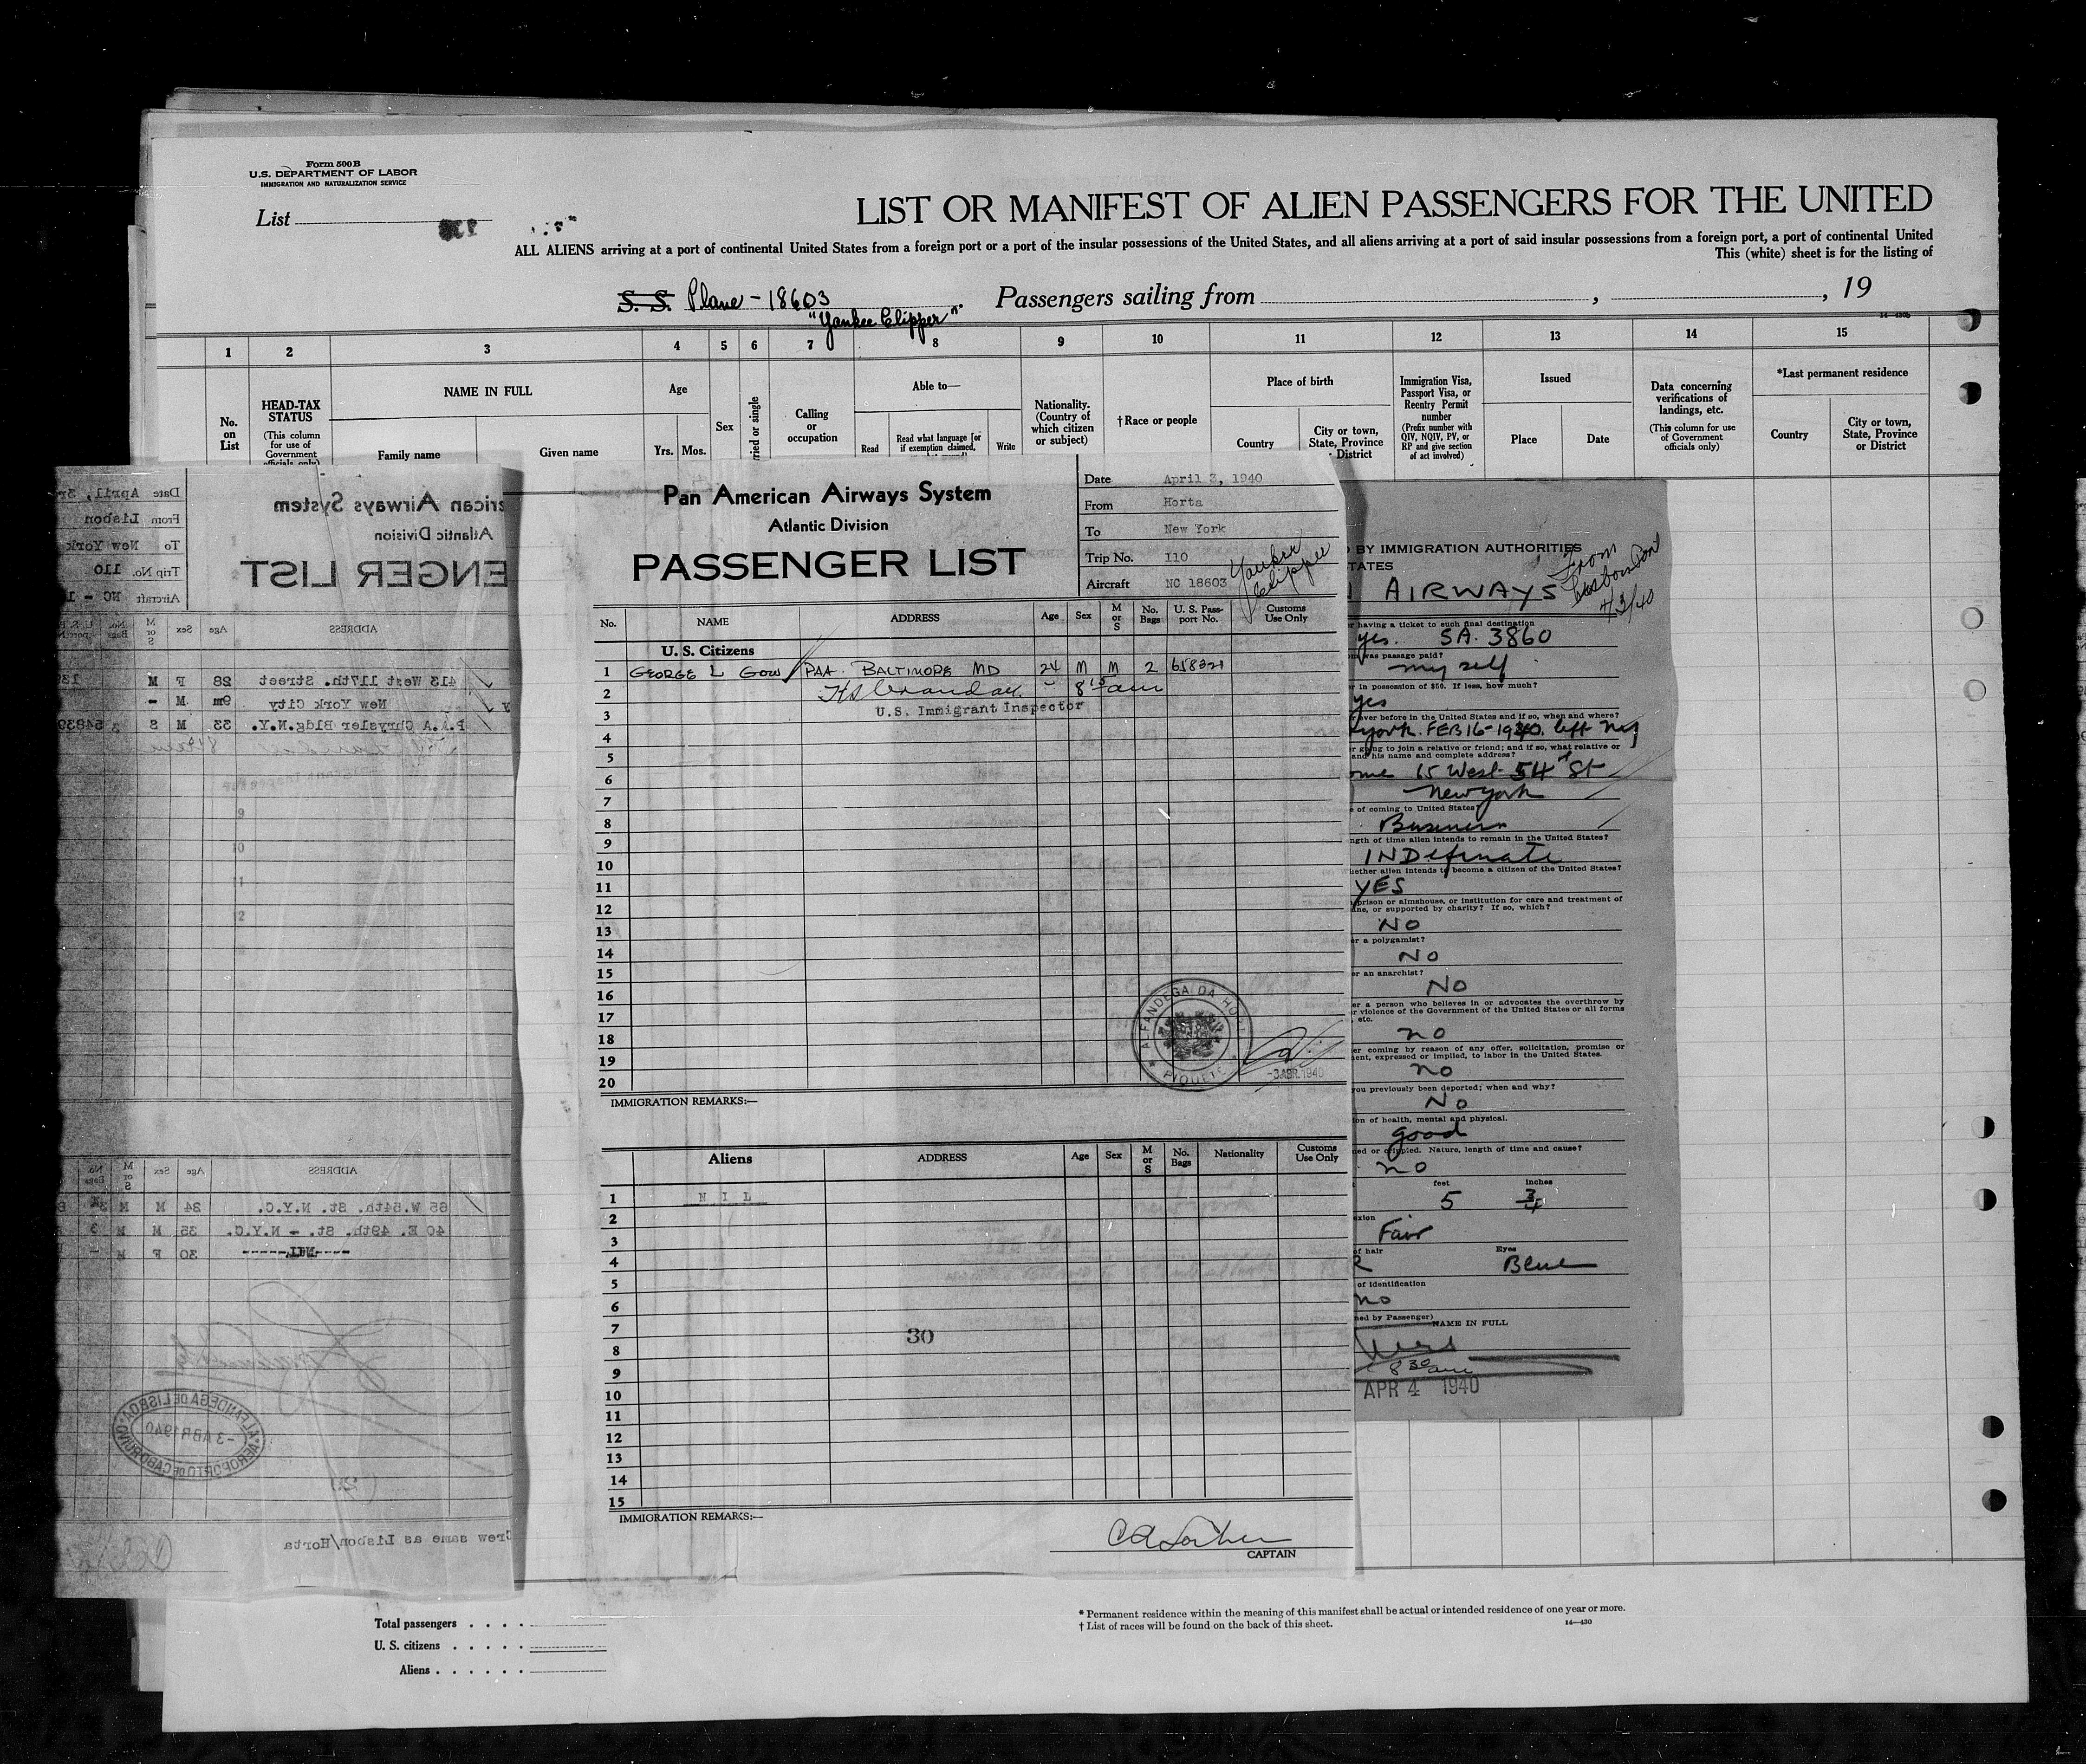 Form 500B
U.S. DEPARTMENT OF LABOR
IMMIGRATION AND NATURALIZATION SERVICE
List
LIST OR MANIFEST OF ALIEN PASSENGERS FOR THE UNITED
ALL ALIENS arriving at a port of continental United States from a foreign port or a port of the insular possessions of the United States, and all aliens arriving at a port of said insular possessions from a foreign port, a port of continental United
This (white) sheet is for the listing of
S. S. Plane - 18603
"Yankee Clipper"
Passengers sailing from , , 19
1 2 3 4 5 6 7 8 9 10 11 12 13 14 15
No. on List
HEAD-TAX STATUS
(This column for use of Government officials only)
NAME IN FULL
Family name
Given name
Age
Yrs. Mos.
Sex
Calling or occupation
Able to—
Read
Read what language [or if exemption claimed,
Write
Nationality. (Country of which citizen or subject)
†Race or people
Place of birth
Country
City or town, State, Province District
Immigration Visa, Passport Visa, or Reentry Permit number
(Prefix number with QIV, NQIV, PV, or RP and give section of act involved)
Issued
Place
Date
Data concerning verifications of landings, etc.
(This column for use of Government officials only)
*Last permanent residence
Country
City or town, State, Province or District
Date April, 3r
From Lisbon
To New York
Trip No. 110
Aircraft NC - 1
erican Airways System
Atlantic Division
ENGER LIST
ADDRESS Age Sex M or S No. Bags
413 West 117th. Street 28 F M
New York City 9m M -
P.A.A Chrysler Bldg.N.Y. 33 M S
9
10
11
12
ADDRESS Age Sex M or S No.
65 W.54th. St. N.Y.C. 34 M M
40 E. 49th. St. - N.Y.C. 35 M M 3
30 F M -
ALFANDEGA DE LISBOA
-3 ABR 1940
AEROPORTO DE CABO RUIVO
Crew same as Lisbon/Horta
Pan American Airways System
Atlantic Division
PASSENGER LIST
Date April 3, 1940
From Horta
To New York
Trip No. 110
Aircraft NC 18603
Yankee Clipper
No. NAME ADDRESS Age Sex M or S No. Bags U. S. Pass-port No. Customs Use Only
U. S. Citizens
1 GEORGE L GOW PAA. BALTIMORE MD 24 M M 2 658321
2 8 15 am
3 U.S. Immigrant Inspector
4
5
6
7
8
9
10
11
12
13
14
15
16
17
18
19
20
ALFANDEGA DA HORTA
PIQUETE
-3 ABR. 1940
IMMIGRATION REMARKS:—
Aliens ADDRESS Age Sex M or S No. Bags Nationality Customs Use Only
1 N I L
2
3
4
5
6
7
30
8
9
10
11
12
13
14
15
IMMIGRATION REMARKS:—
CAPTAIN
BY IMMIGRATION AUTHORITIES
TATES
AIRWAYS
From
4/3/40
having a ticket to such final destination
yes. SA. 3860
was passage paid?
my self
in possession of $50. If less, how much?
yes
ever before in the United States and if so, when and where?
york. FEB 16-1940. left
going to join a relative or friend; and if so, what relative or
and his name and complete address?
15 West 54th St
New york
of coming to United States?
Business
ngth of time alien intends to remain in the United States?
INDefinate
hether alien intends to become a citizen of the United States?
YES
prison or almshouse, or institution for care and treatment of
ane, or supported by charity? If so, which?
NO
er a polygamist?
NO
er an anarchist?
NO
er a person who believes in or advocates the overthrow by
r violence of the Government of the United States or all forms
etc.
no
er coming by reason of any offer, solicitation, promise or
ent, expressed or implied, to labor in the United States.
no
you previously been deported; when and why?
No
on of health, mental and physical.
good
ed or crippled. Nature, length of time and cause?
no
feet inches
5 3/4
exion
Fair
of hair Eyes
Blue
of identification
no
ned by Passenger)
NAME IN FULL
8 30 am
APR 4 1940
Total passengers . . . .
U. S. citizens . . . . .
Aliens . . . . . .
* Permanent residence within the meaning of this manifest shall be actual or intended residence of one year or more.
† List of races will be found on the back of this sheet.
14—430